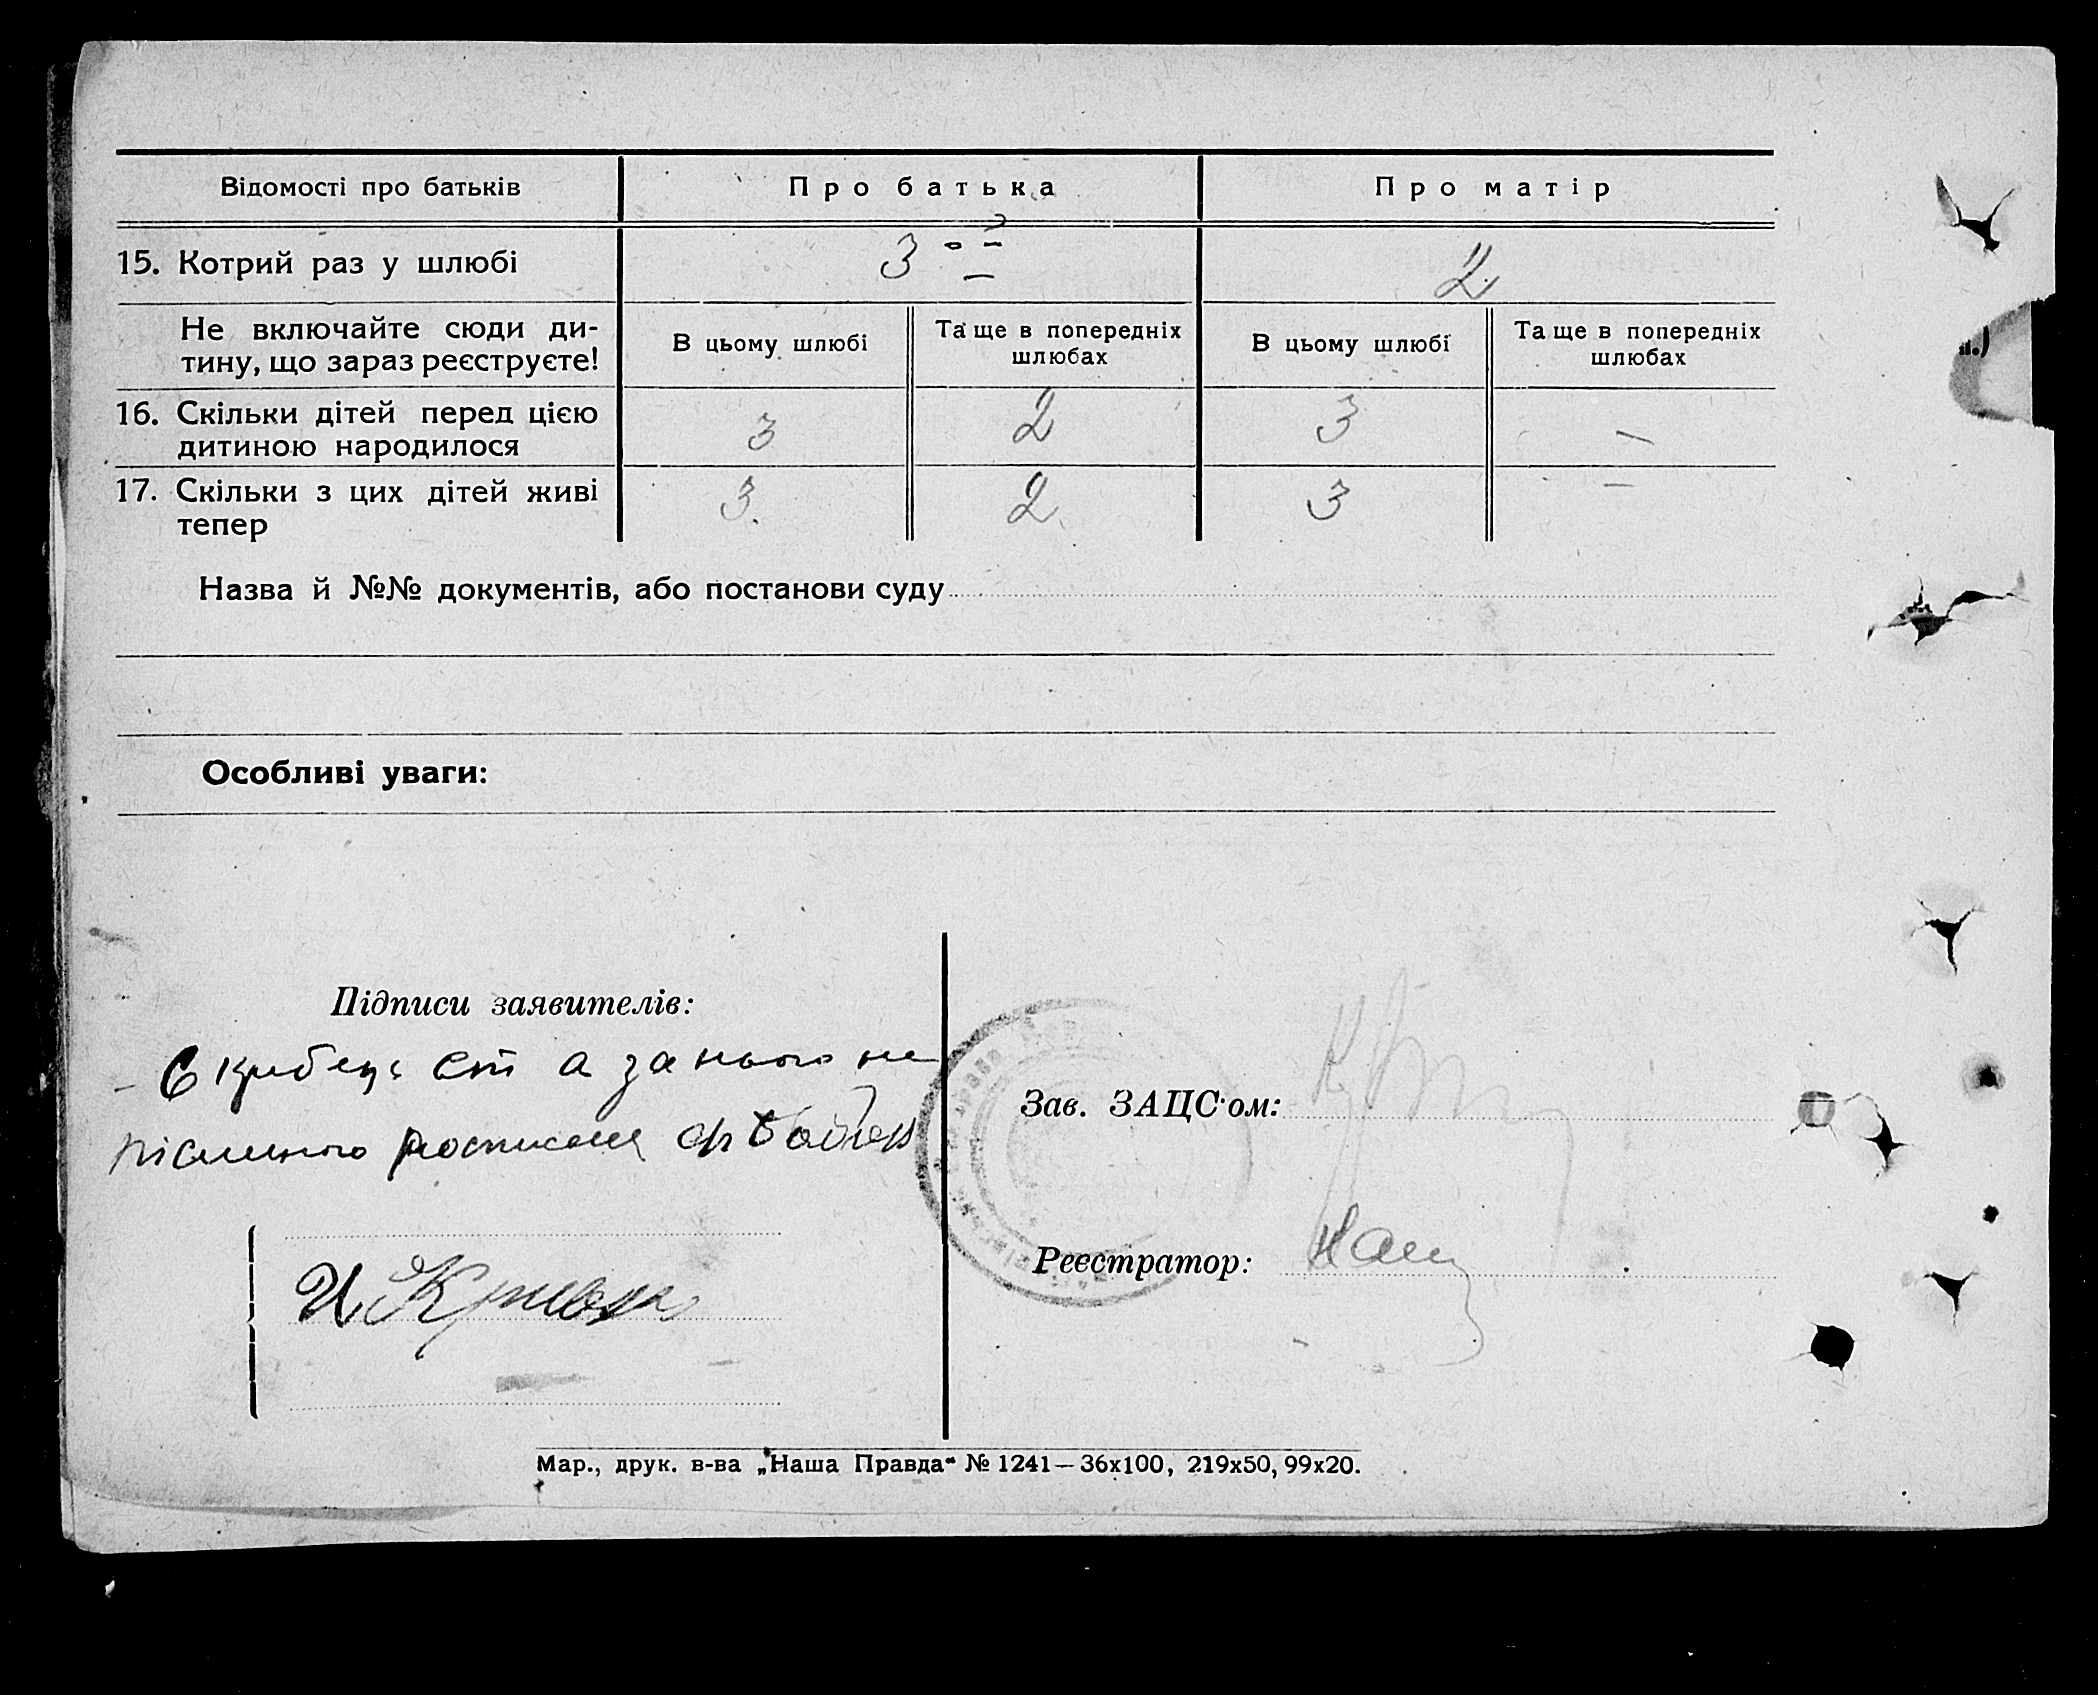 Відомості про батьків Про батька Про матір
15. Котрий раз у шлюбі 3 2
Не включайте сюди ди-
тину, що зараз реєструєте!
В цьому шлюбі
Та ще в попередніх
шлюбах
В цьому шлюбі
Та ще в попередніх
шлюбах
16. Скільки дітей перед цією
дитиною народилося
3 2 3 —
17. Скільки з цих дітей живі
тепер
3 2 3 —
Назва й №№ документів, або постанови суду
Особливі уваги:
Підписи заявителів:
а за нього не
письмного
Зав. ЗАЦС'ом:
Реєстратор:
Мар., друк. в-ва „Наша Правда“ № 1241—36х100, 219х50, 99х20.